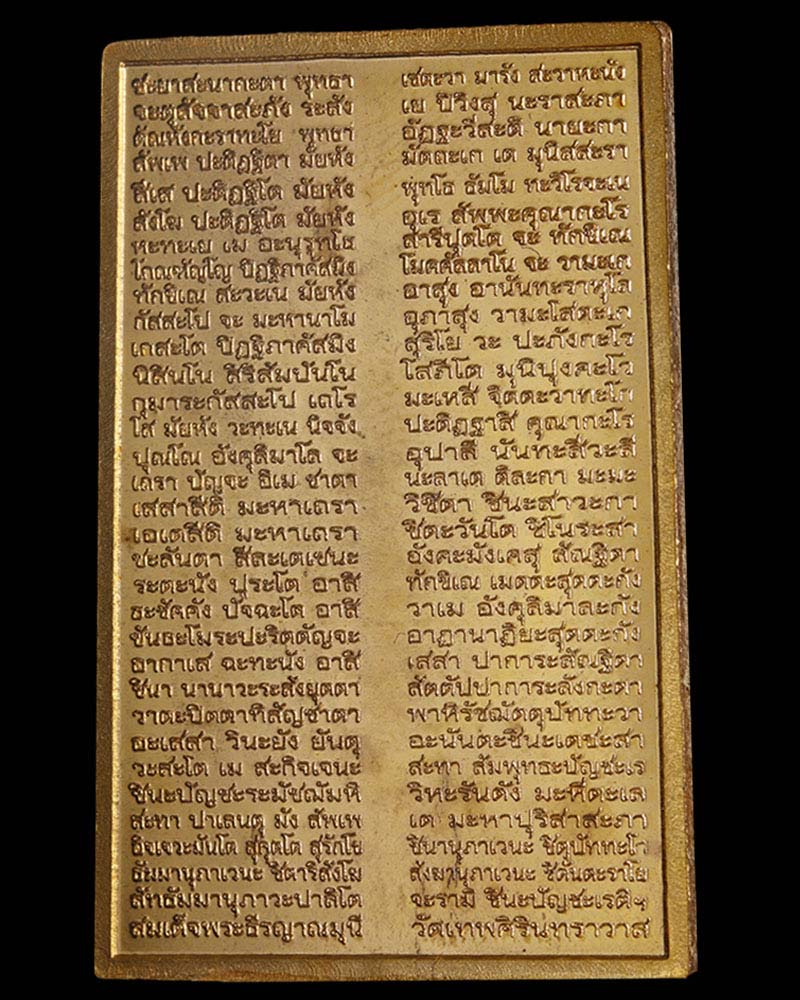 ชะยาสะนากะตา พุทธา เชตะวา มารัง สะวาหะนัง
จะตุสัจจาสะภัง ระสัง เย ปิวิงสุ นะราสะภา
ตัณหังกะราทะโย พุทธา อัฏฐะวีสะติ นายะกา
สัพเพ ปะติฏฐิตา มัยหัง มัตถะเก เต มุนิสสะรา
สีเส ปะติฏฐิโต มัยหัง พุทโธ ธัมโม ทะวิโรจะเน
สังโฆ ปะติฏฐิโต มัยหัง อุเร สัพพะคุณากะโร
หะทะเย เม อะนุรุทโธ สารีปุตโต จะ ทักขิเณ
โกณฑัญโญ ปิฏฐิภาคัสมิง โมคคัลลาโน จะ วามะเก
ทักขิเณ สะวะเน มัยหัง อาสุง อานันทะราหุโล
กัสสะโป จะ มะหานาโม อุภาสุง วามะโสตะเก
เกสะโต ปิฏฐิภาคัสมิง สุริโย วะ ปะภังกะโร
นิสินโน สิริสัมปันโน โสภีโต มุนิปุงคะโว
กุมาระกัสสะโป เถโร มะเหสี จิตตะวาทะโก
โส มัยหัง วะทะเน นิจจัง ปะติฏฐาสิ คุณากะโร
ปุณโณ อังคุลิมาโล จะ อุปาลี นันทะสีวะลี
เถรา ปัญจะ อิเม ชาตา นะลาเต ติละกา มะมะ
เสสาสีติ มะหาเถรา วิชิตา ชินะสาวะกา
เอเตสีติ มะหาเถรา ชิตะวันโต ชิโนระสา
ชะลันตา สีละเตเชนะ อังคะมังเคสุ สัณฐิตา
ระตะนัง ปุระโต อาสิ ทักขิเณ เมตตะสุตตะกัง
ธะชัคคัง ปัจฉะโต อาสิ วาเม อังคุลิมาละกัง
ขันธะโมระปะริตตัญจะ อาฏานาฏิยะสุตตะกัง
อากาเส ฉะทะนัง อาสิ เสสา ปาการะสัณฐิตา
ชินา นานาวะระสังยุตตา สัตตัปปาการะลังกะตา
วาตะปิตตาทิสัญชาตา พาหิรัชฌัตตุปัททะวา
อะเสสา วินะยัง ยันตุ อะนันตะชินะเตชะสา
วะสะโต เม สะกิจเจนะ สะทา สัมพุทธะปัญชะเร
ชินะปัญชะระมัชฌัมหิ วิหะรันตัง มะหีตะเล
สะทา ปาเลนตุ มัง สัพเพ เต มะหาปุริสาสะภา
อิจเจวะมันโต สุคุตโต สุรักโข ชินานุภาเวนะ ชิตุปัททะโว
ธัมมานุภาเวนะ ชิตาริสังโฆ สังฆานุภาเวนะ ชิตันตะราโย
สัทธัมมานุภาวะปาลิโต จะรามิ ชินะปัญชะเรติฯ
สมเด็จพระธีรญาณมุนี วัดเทพศิรินทราวาส